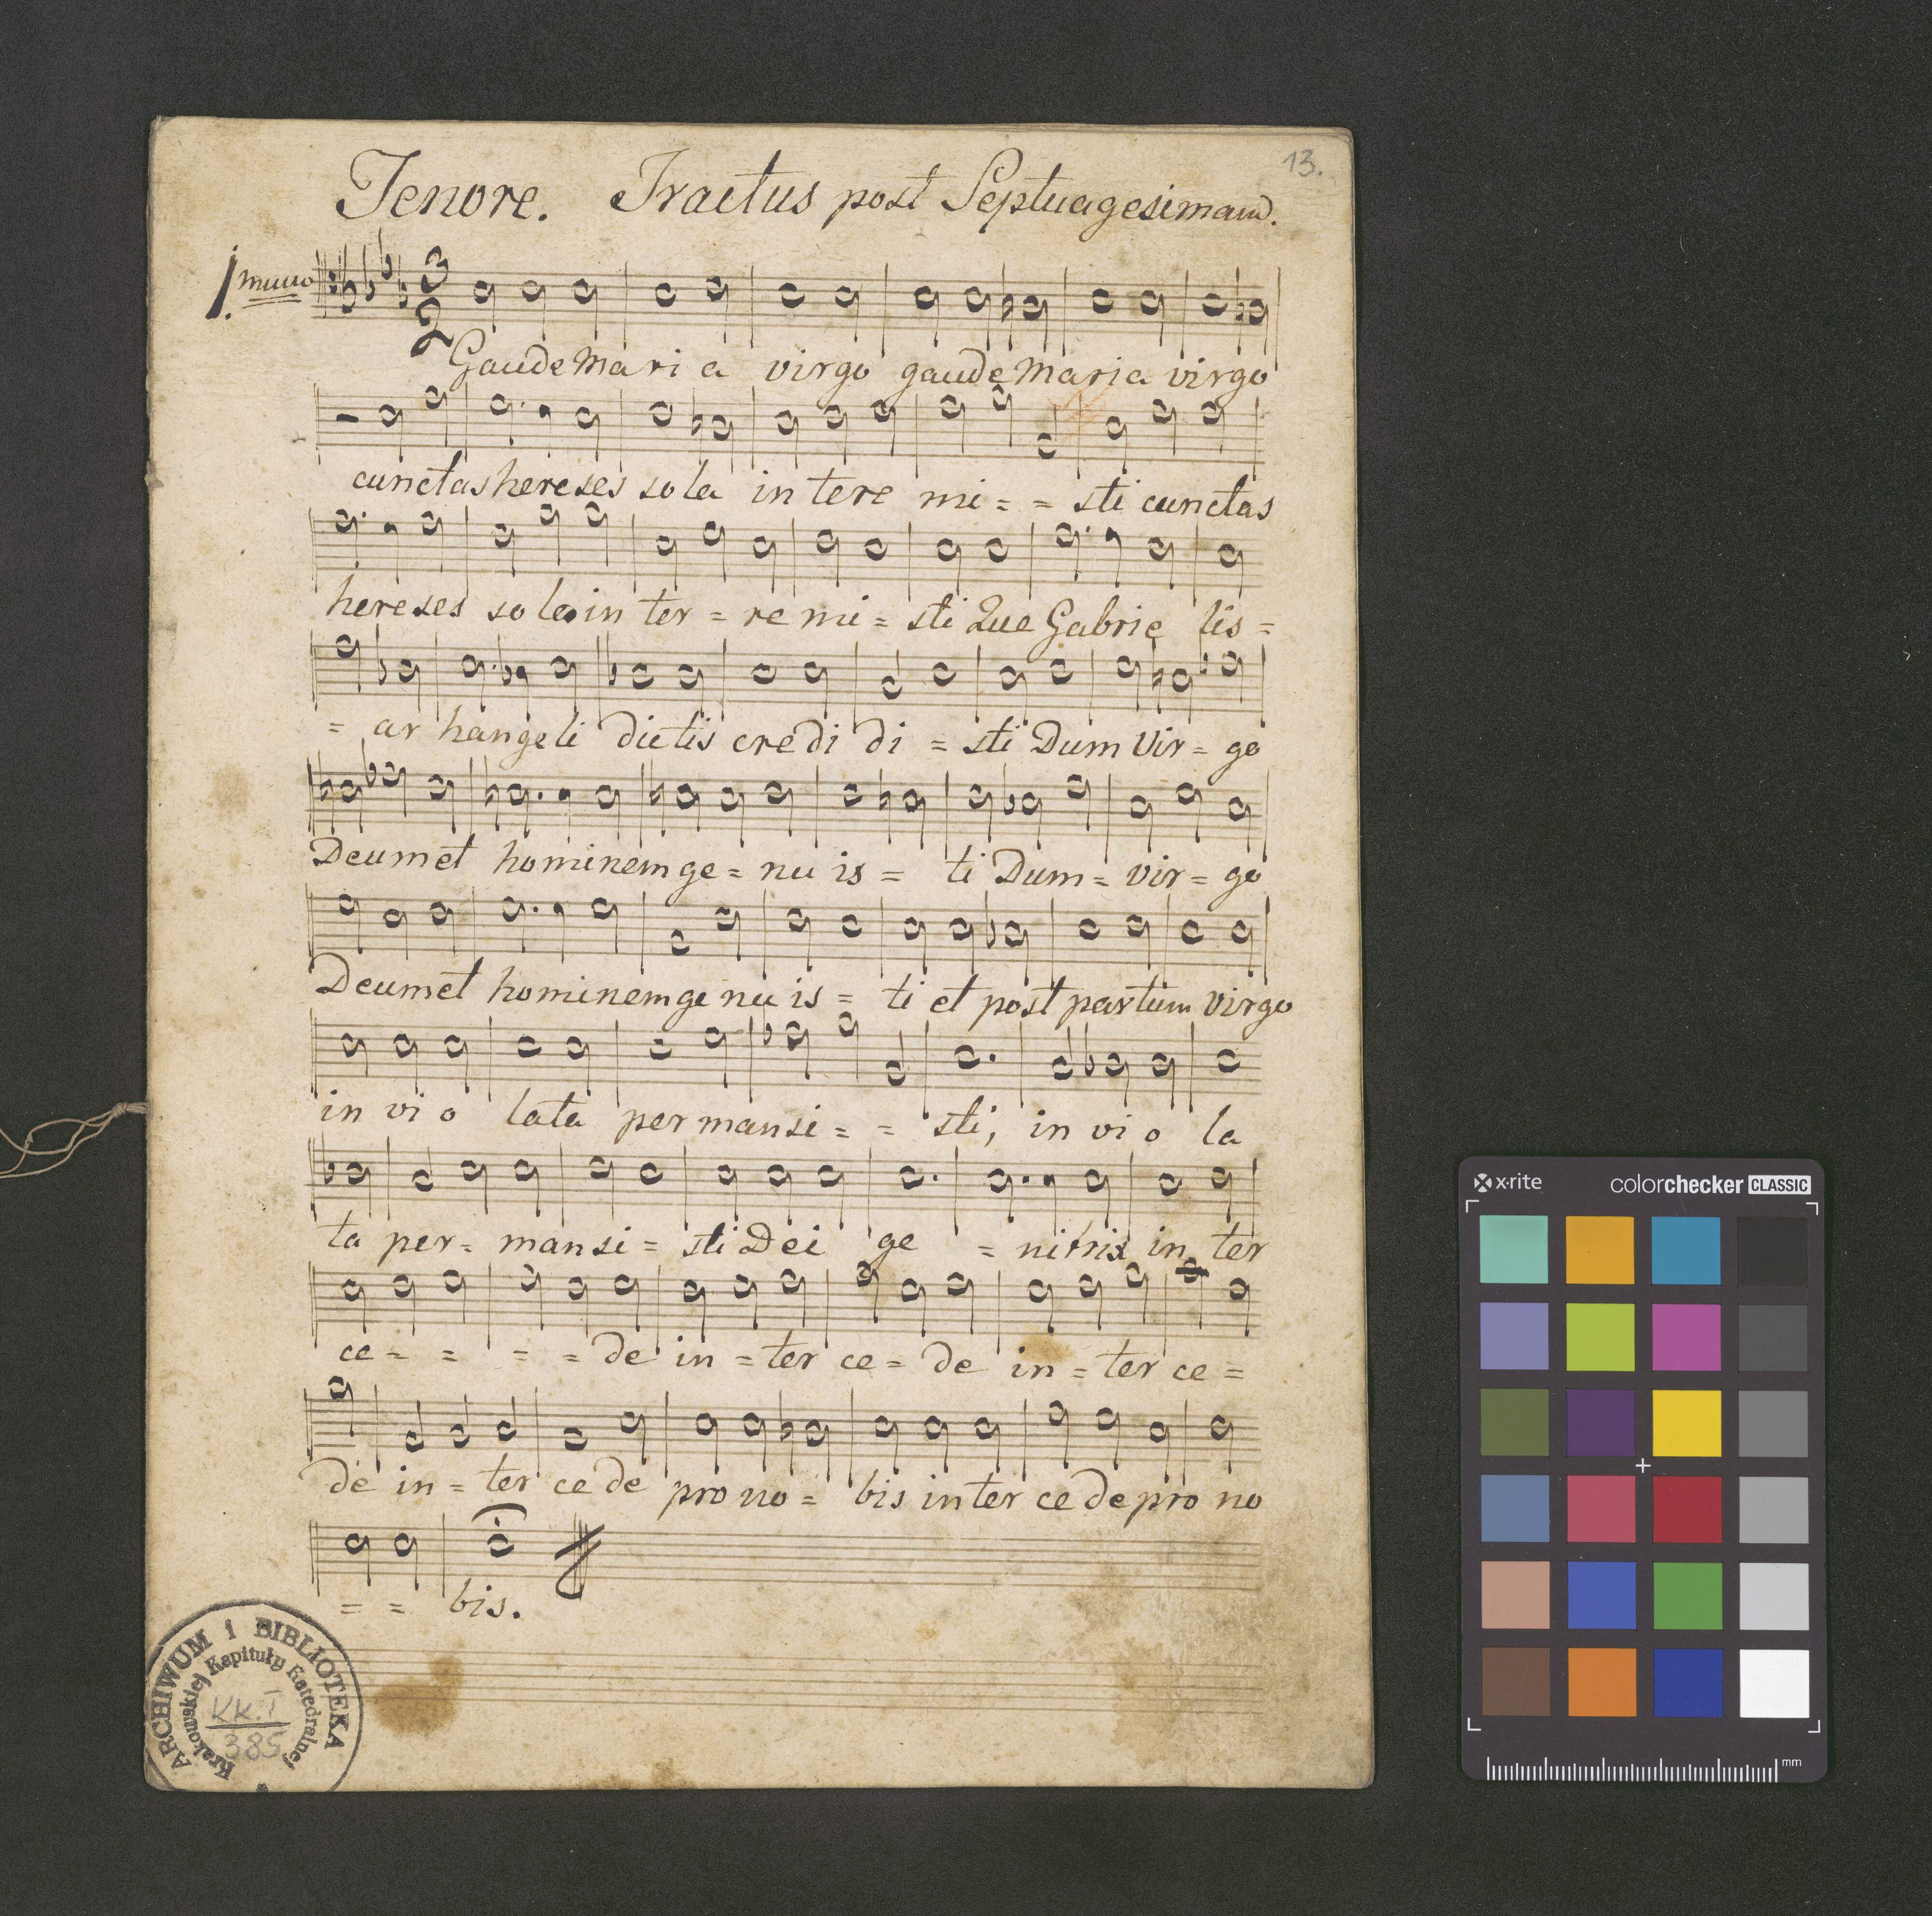 13.
Tenore. Tractus post Septuagesimam.
1mmo
3 2
Gaude Mari a virgo gaude Maria virgo
cunctas hereses sola in tere mi = = sti cunctas
hereses so la in ter = re mi = sti Que Gabrie lis =
= ar hangeli dictis credi di = sti Dum Vir = go
Deum et hominem ge = nu is = ti Dum = vir = go
Deum et hominem ge nu is = ti et post partum virgo
in vi o lata per mansi = = sti, in vi o la
ta per = man si = sti Dei ge = nitrix in ter
ce = = = = de in = ter ce = de in = ter ce =
de in = ter ce de pro no = bis inter ce de pro no
= = bis.
ARCHIWUM I BIBLIOTEKA
Krakowskiej Kapituły Katedralnej
KK. I
385
x·rite colorchecker CLASSIC
mm